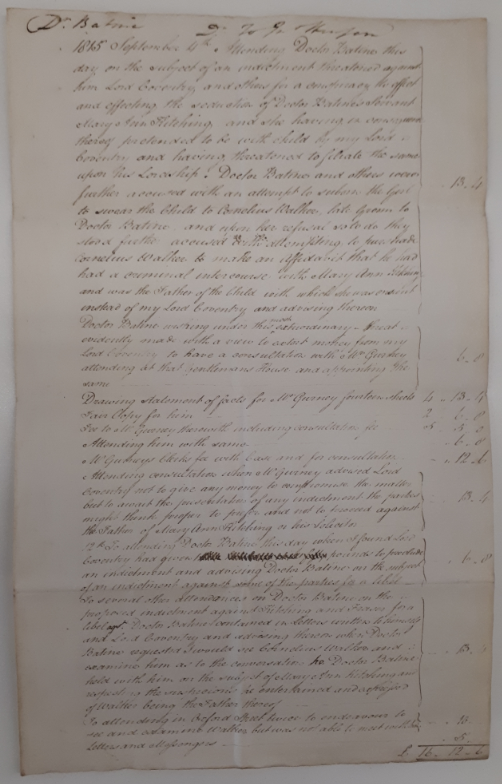 Dr. Batine Dr. To
1815 September 4th Attending Doctor Batine this
day on the subject of an indictment threatened against
him Lord Coventry and others for a conspiracy
and effecting the seduction of Doctor Batines servant
Mary Ann Kitching, and she having in consequence
thereof pretended to be with child by my Lord
Coventry and having threatened to filiate the same
upon his Lordship. Doctor Batine and others were
further accused with an attempt to suborn the Girl
to swear the Child to Cornelius Walker, late Groom to
Doctor Batine, and upon her refusal so to do they
stood further accused with attempting to persuade
Cornelius Walker to make an affidavit that he had
had a criminal intercourse with Mary Ann Kitching
and was the Father of the Child with which she was
instead of my Lord Coventry and advising thereon 13 4
Doctor Batine under this extraordinary threat
evidently made with a view to extort money from my
Lord Coventry to have a consultation with Mr Gurney
attending at that Gentlemans House and appointing the
same 6 8
Drawing statement of facts for Mr Gurney fourteen sheets 4 13 4
Fair Copy for him 2
Fee to Mr Gurney therewith including consultation fee 5 5 0
Attending him with same 6 8
Mr Gurneys Clerks fee with Case and for consultation 12 6
Attending consultation when Mr Gurney advised Lord
Coventry not to give any money to compromise the matter
but to await the prosecution of any indictment the parties
might think proper to prefer and not to proceed against
the Father of Mary Ann Kitching or his Solicitor 13 4
12th To attending Doctor Batine this day when I found Lord
Coventry had given pounds to
an indictment and advising Doctor Batine on the subject
of an indictment against some of the parties for a libel 6 8
To several other Attendances on Doctor Batine on the
proposed indictment against Kitching and for a
libel agt. Doctor Batine contained in letters written to himself
and Lord Coventry and advising thereon when Doctor
Batine requested I would see Cornelius Walker and
examine him as to the conversation he Doctor Batine
held with him on the subject of Mary Ann Kitching
respect to the suspicions he entertained and expressed
of Walker being the Father thereof 13 4
To attending in Oxford Street to endeavour to
see and examine Walker but was not able to meet with
Letters and Messengers 5
£ 16 12 6